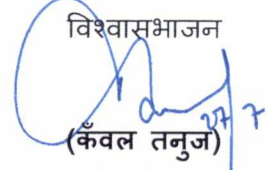 विश्वासभाजन
27/7
(कँवल तनुज)